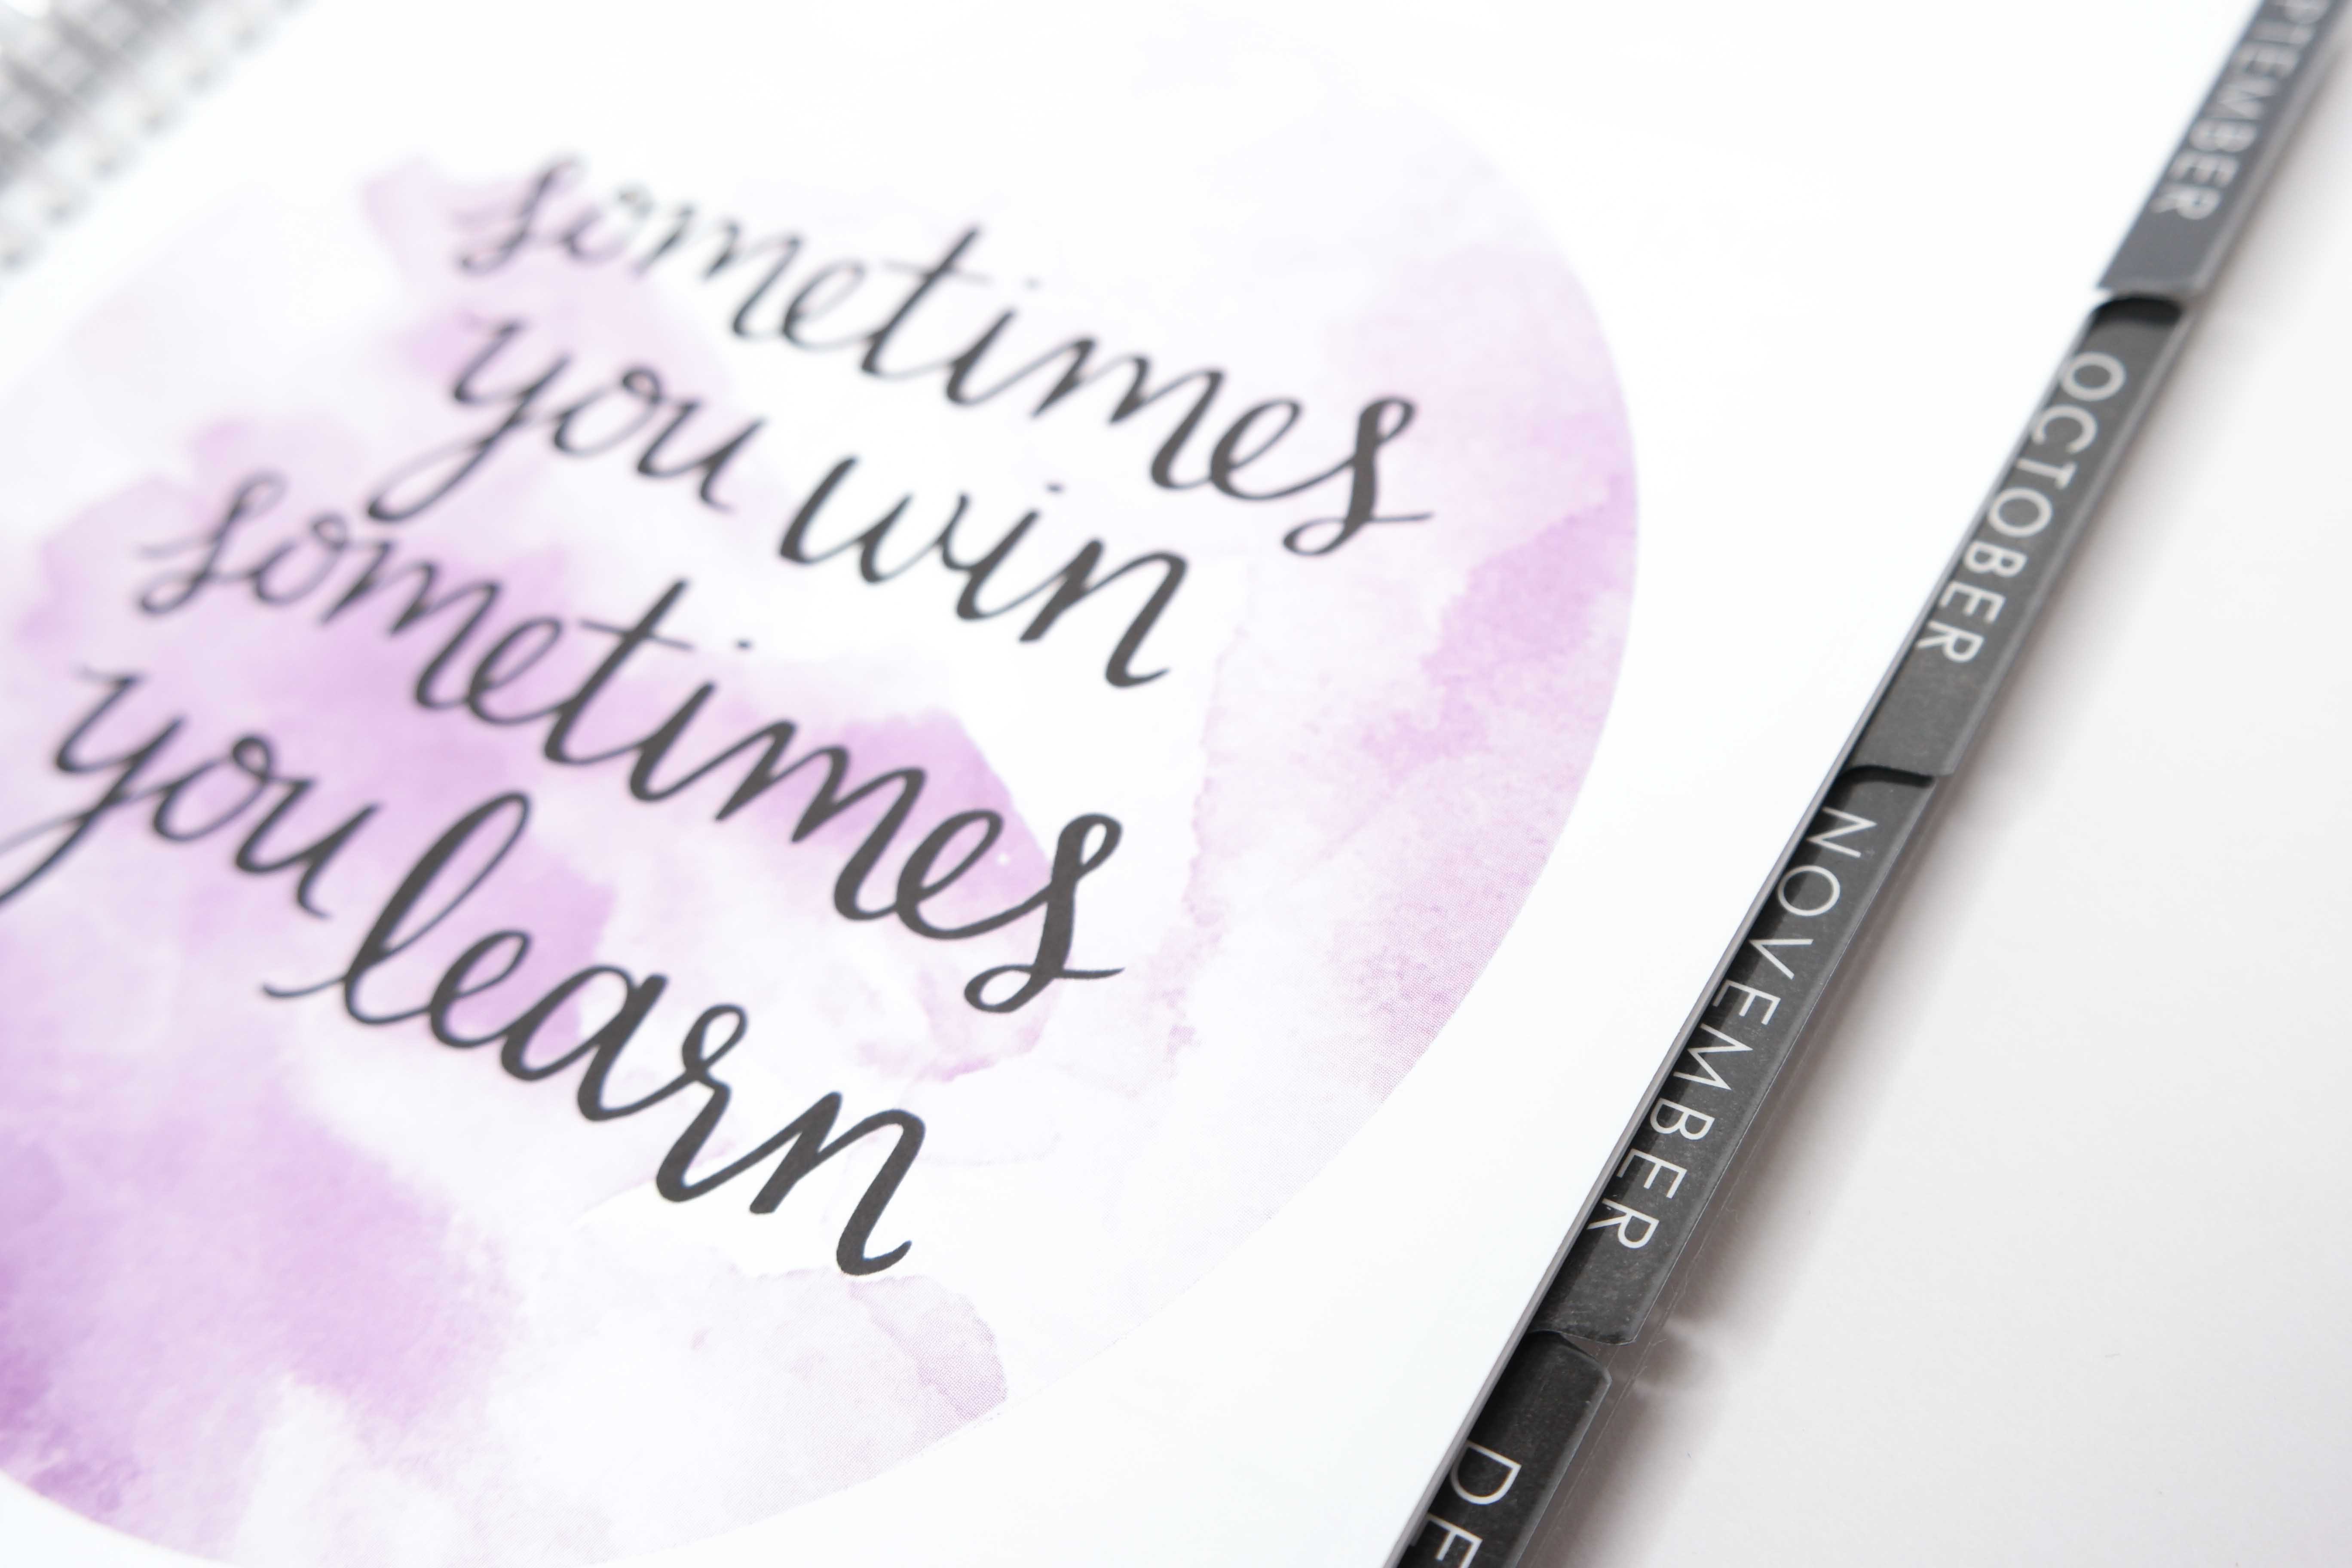 sometimes
you win
sometimes
you learn
PTEMBER
OCTOBER
NOVEMBER
DE